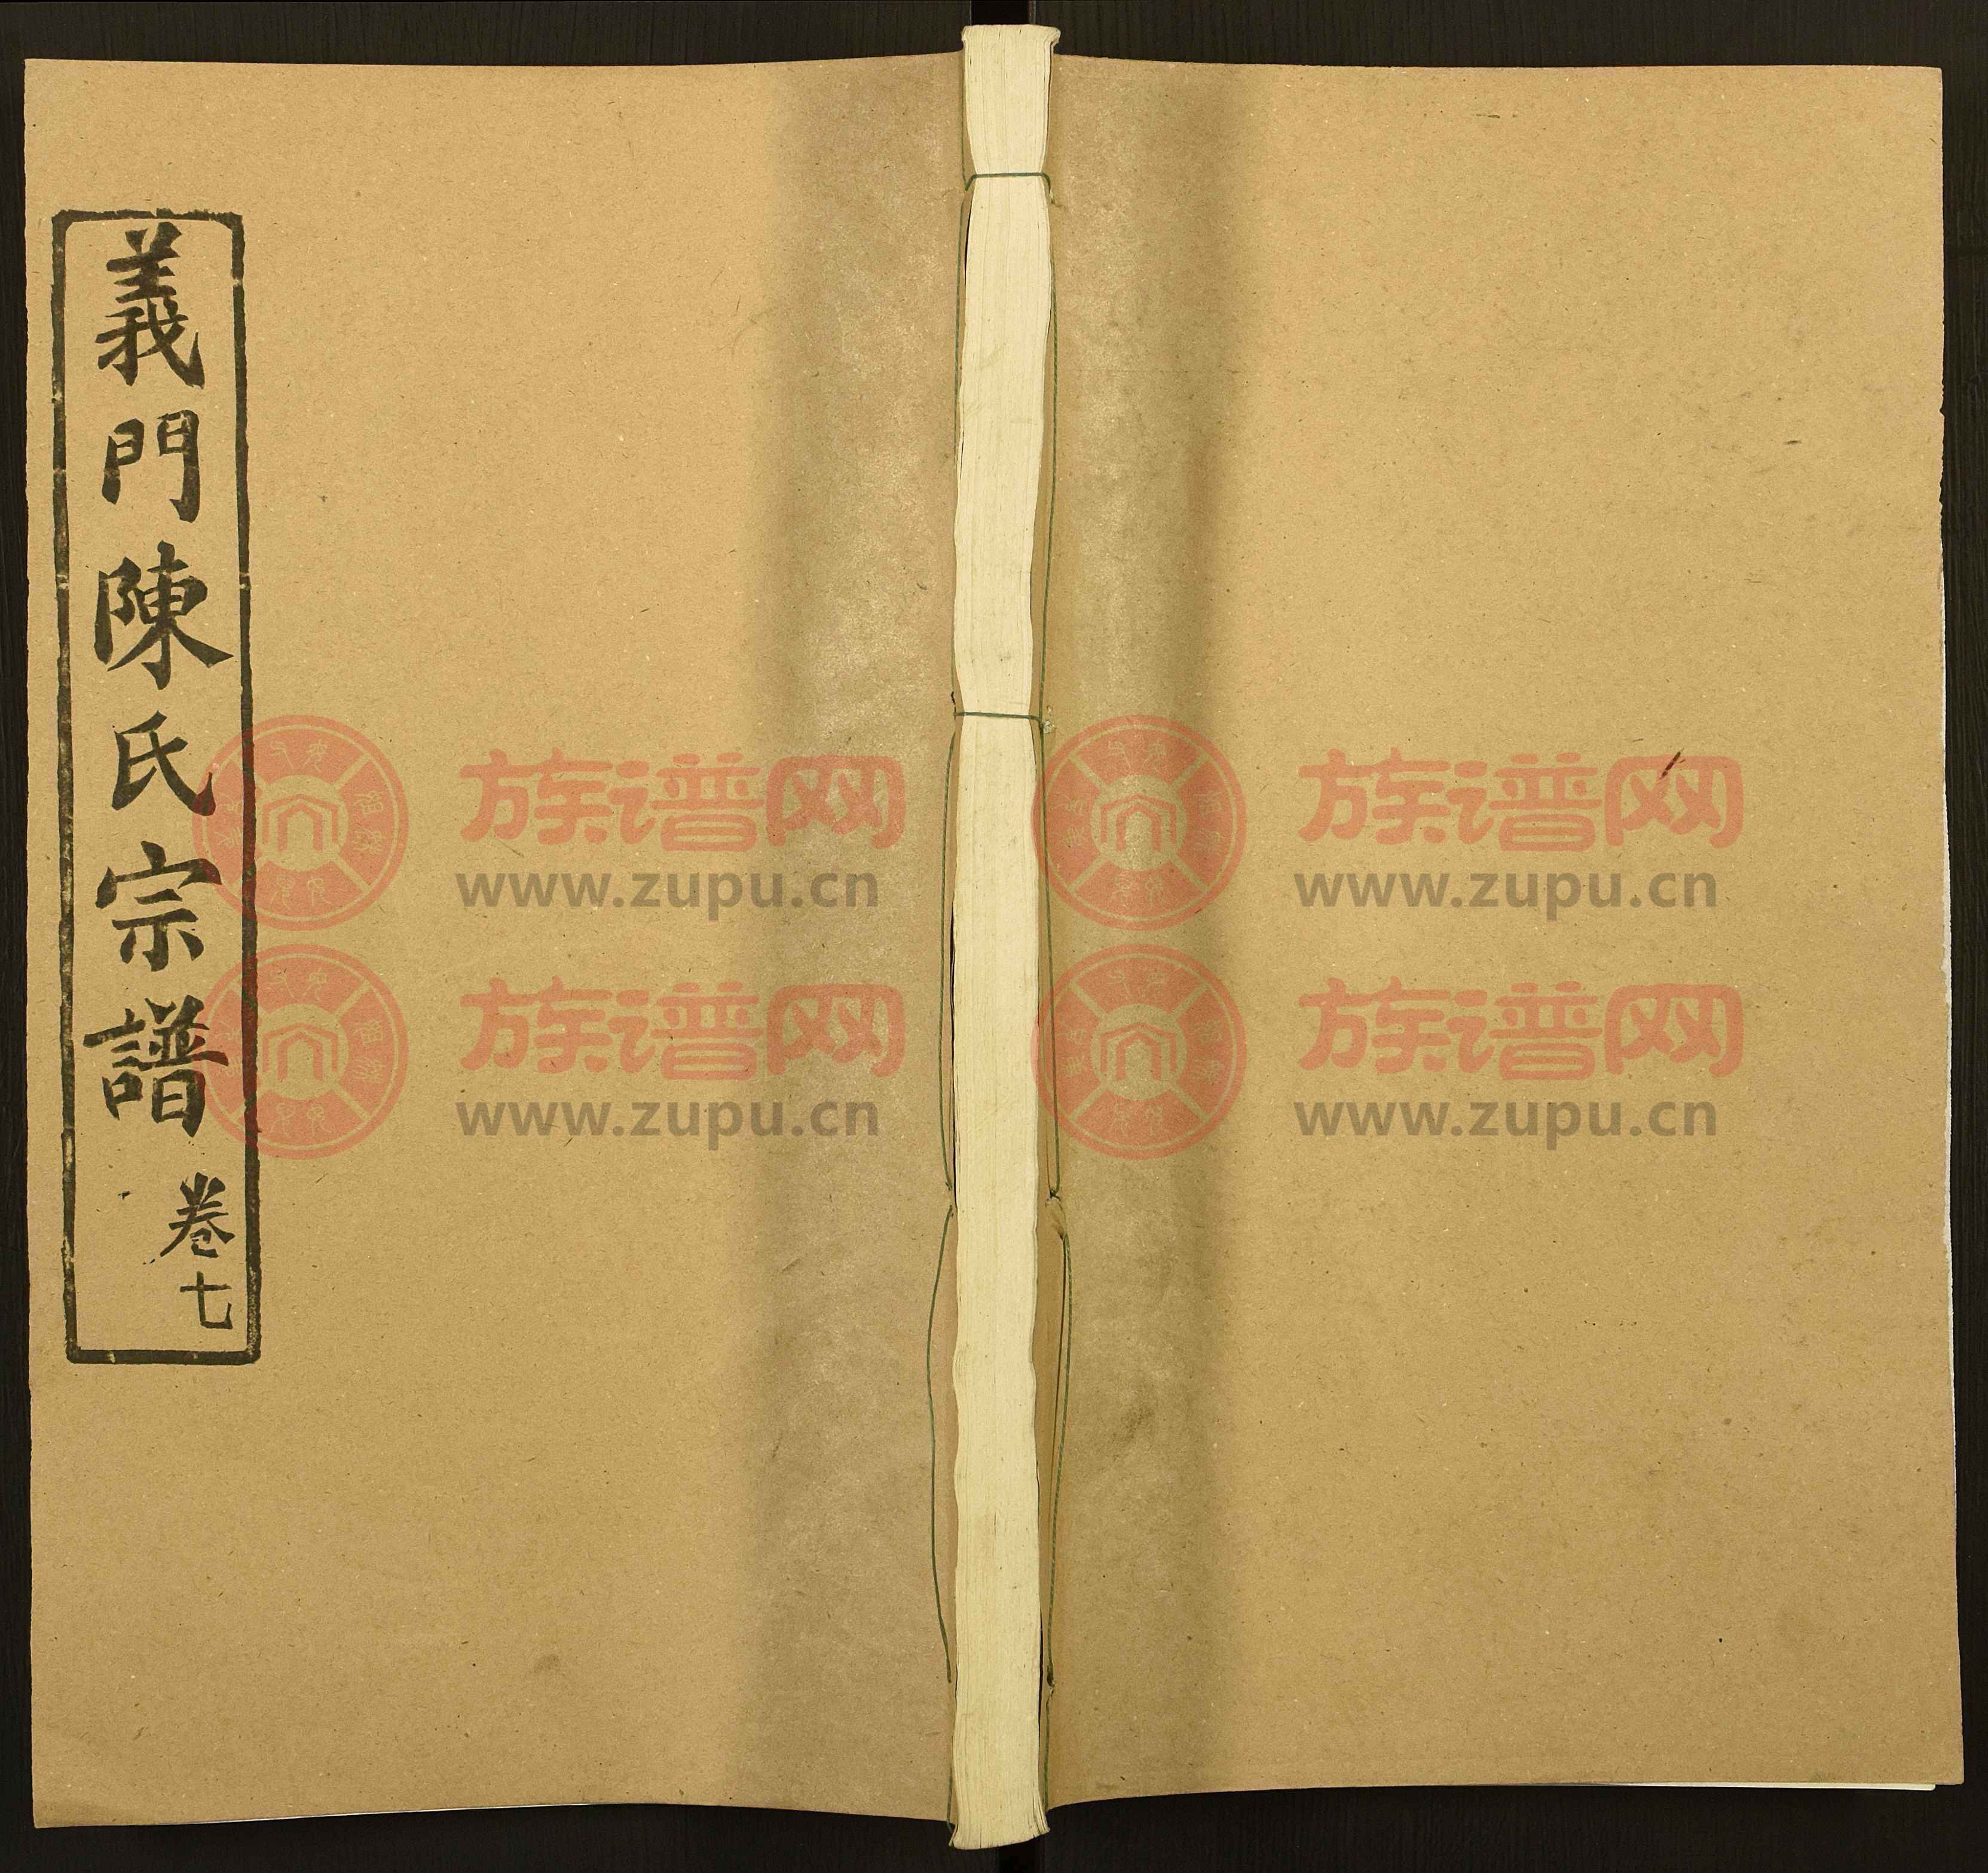 義門陳氏宗譜
卷七
族谱网
www.zupu.cn
族谱网
www.zupu.cn
族谱网
www.zupu.cn
族谱网
www.zupu.cn